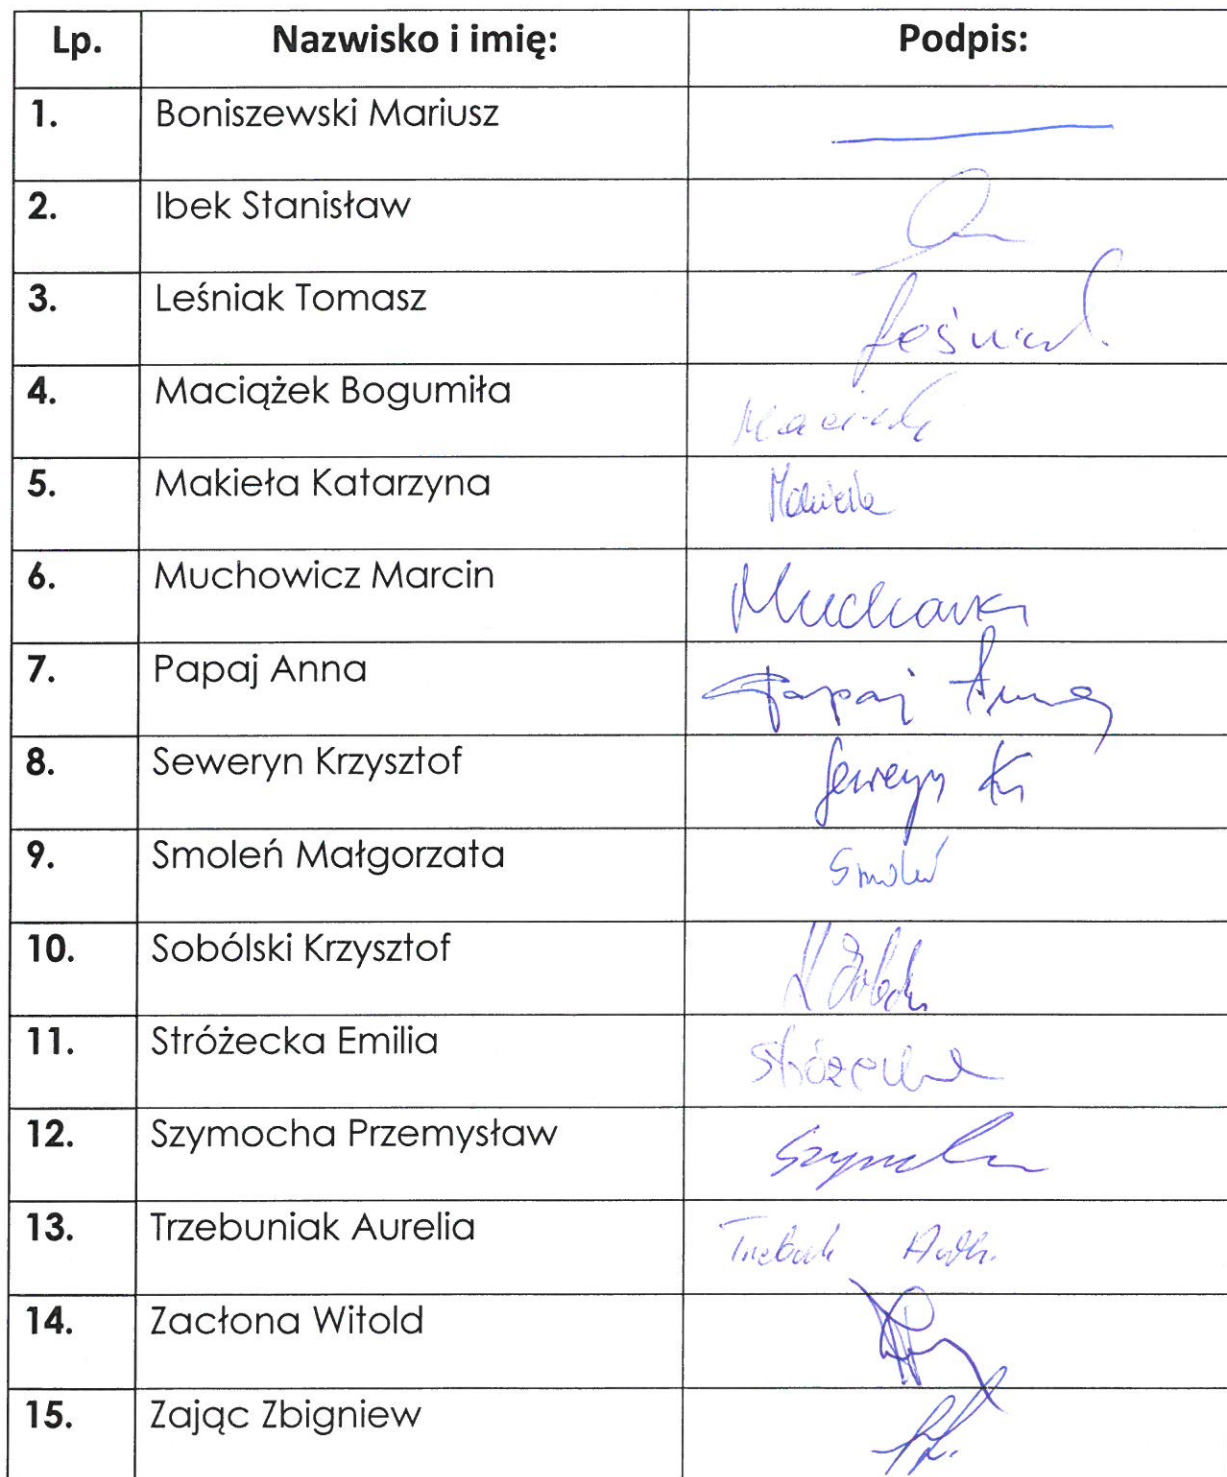 Lp. Nazwisko i imię: Podpis:
1. Boniszewski Mariusz
2. Ibek Stanisław
3. Leśniak Tomasz Leśniak
4. Maciążek Bogumiła
5. Makieła Katarzyna Makieła
6. Muchowicz Marcin
7. Papaj Anna Papaj Anna
8. Seweryn Krzysztof Seweryn K
9. Smoleń Małgorzata Smoleń
10. Sobólski Krzysztof
11. Stróżecka Emilia Stróżecka
12. Szymocha Przemysław
13. Trzebuniak Aurelia
14. Zacłona Witold
15. Zając Zbigniew